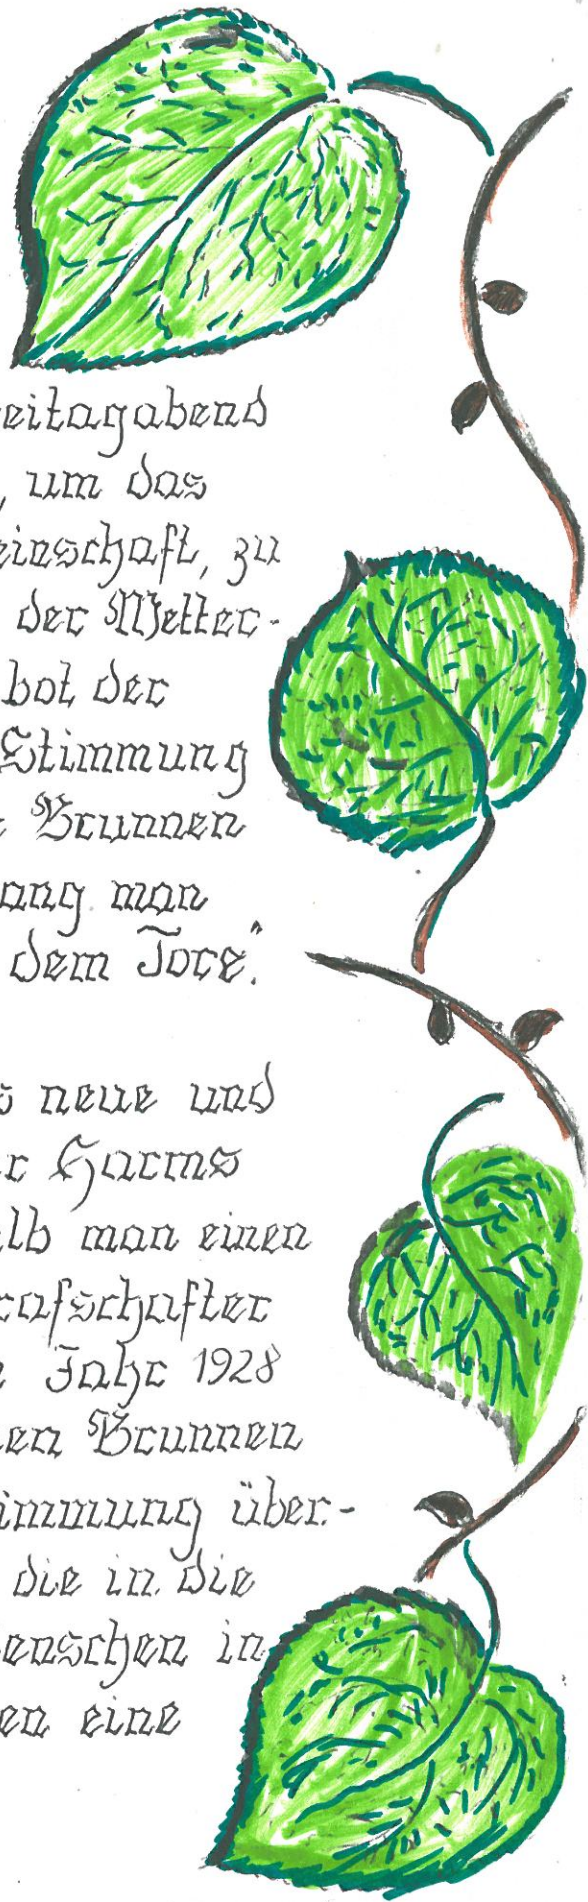 eitagabend
, um das
einschaft, zu
der Wetter-
bot der
Stimmung
e Brunnen
ang man
dem Tore".
s neue und
r Harms
lb man einen
rafschafter
e Jahr 1928
en Brunnen
immung über-
die in die
enschen in
en eine